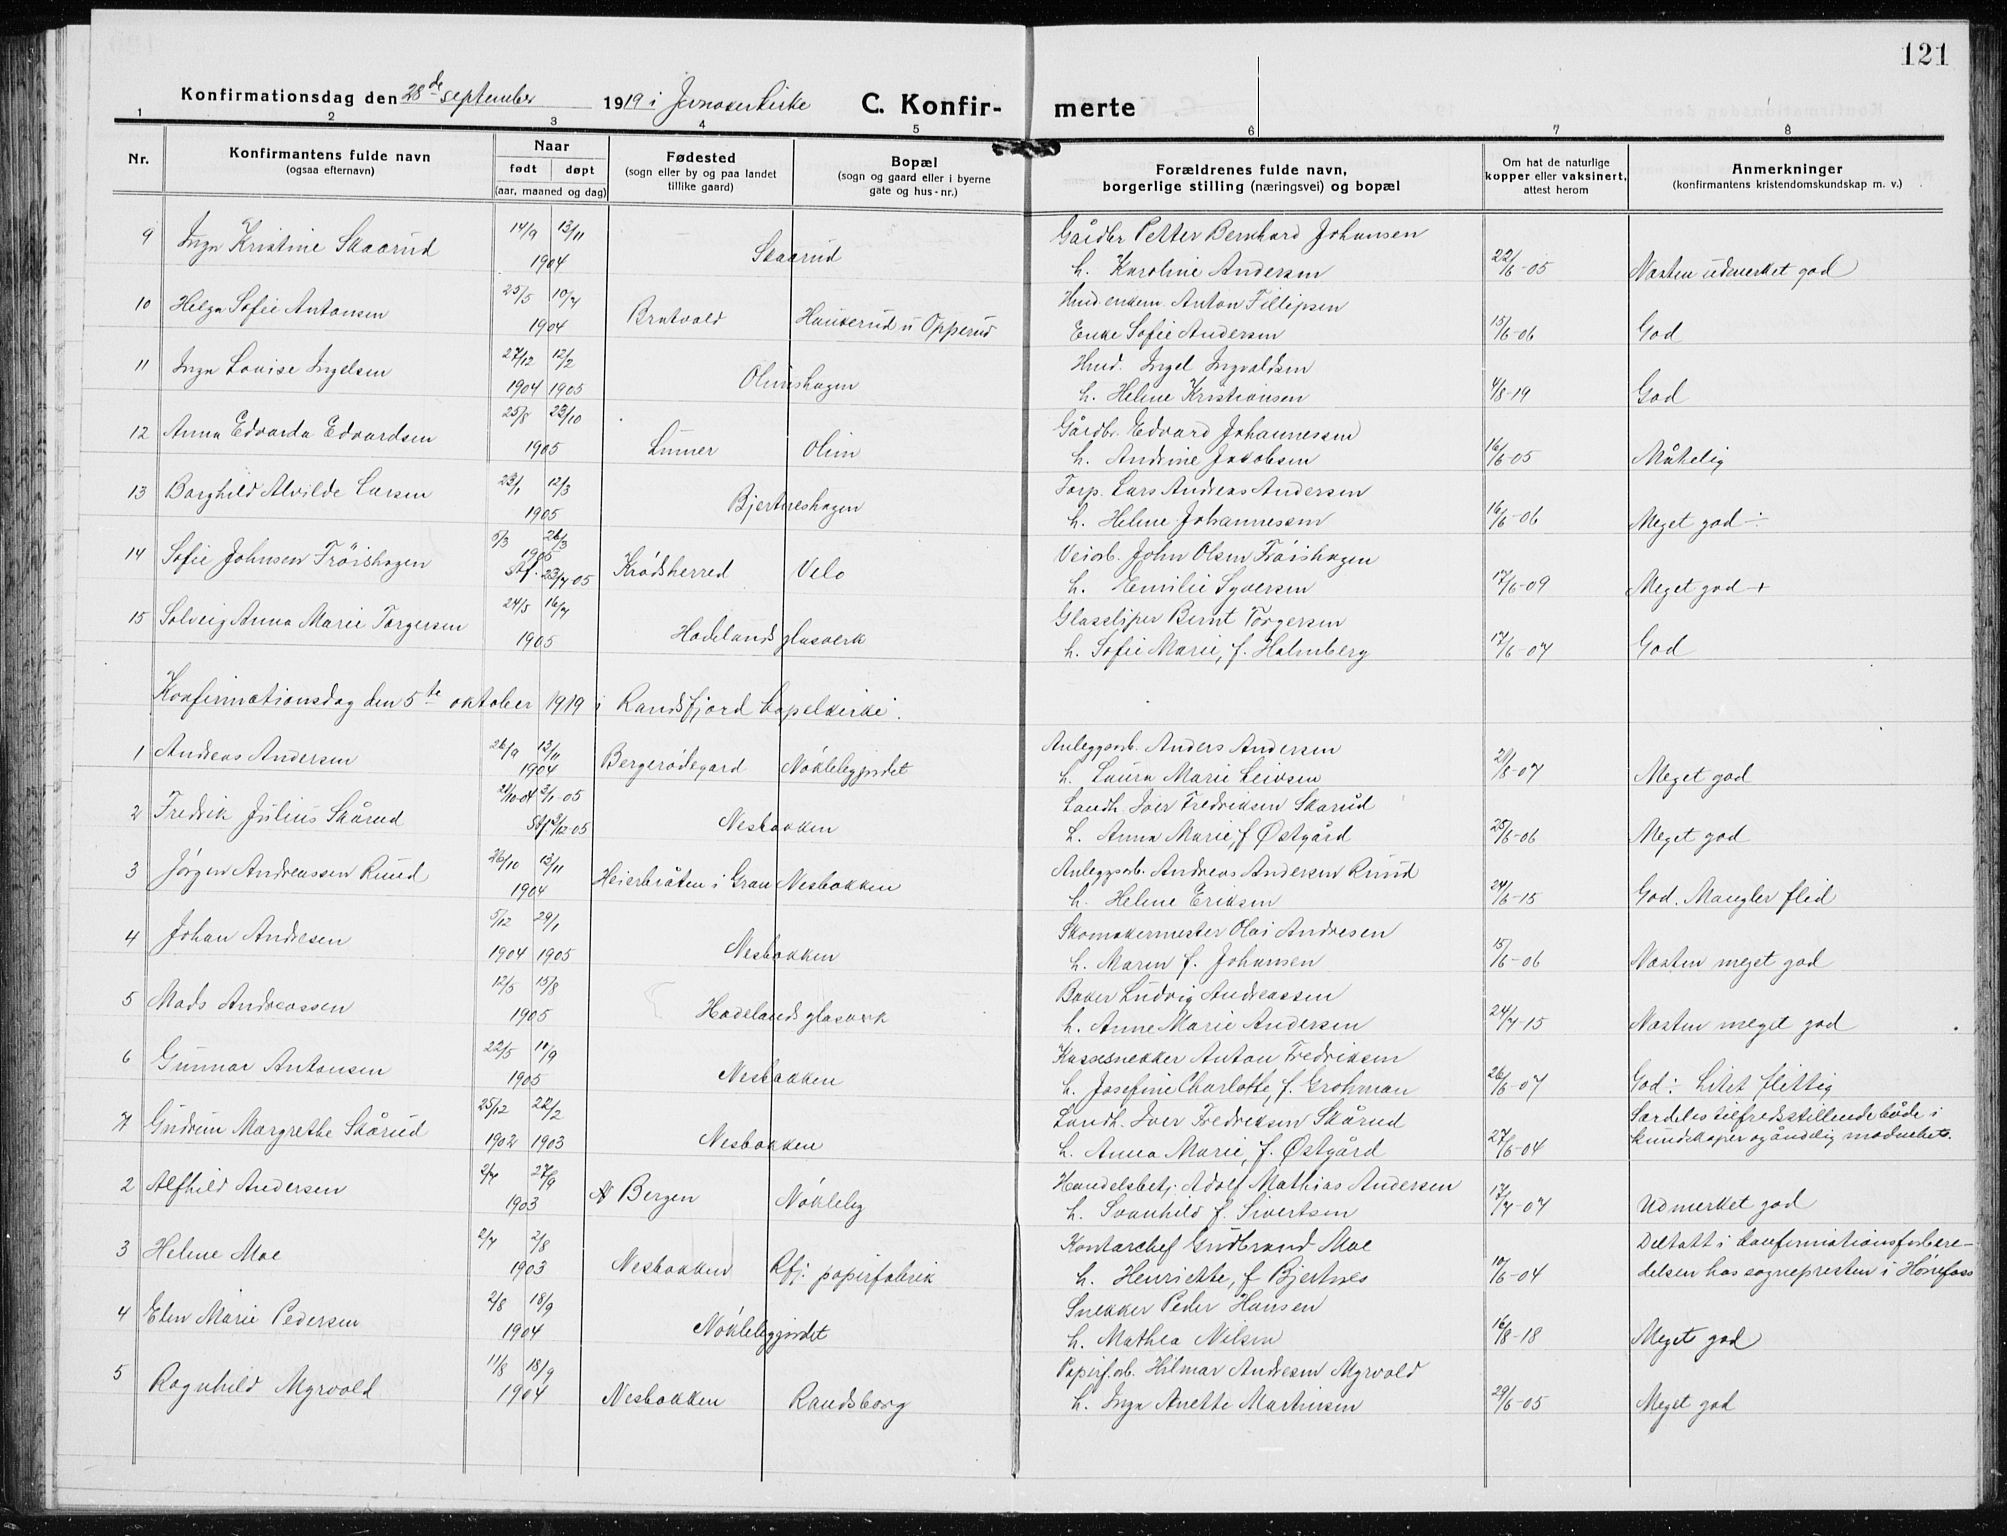 121
Konfirmationsdag den 28de september 1919 i Jevnaker kirke C. Konfir- merte
1 2 3 4 5 6 7 8
Nr. Konfirmantens fulde navn (ogsaa efternavn) Naar født døpt (aar, maaned og dag) Fødested (sogn eller by og paa landet tillike gaard) Bopæl (sogn og gaard eller i byerne gate og hus-nr.) Forældrenes fulde navn, borgerlige stilling (næringsvei) og bopæl Om hat de naturlige kopper eller vaksinert, attest herom Anmerkninger (konfirmantens kristendomskundskap m. v.)
9 Inga Kristine Skaarud 14/9 13/11 1904 Skaarud Gårdbr Petter Bernhard Johansen
h. Karoline Andersen 22/6-05 Næsten udmerket god
10 Helga Sofie Antonsen 25/5 10/7 1904 Bratvold Haukerud u Opperud Husd enkem. Anton Fillipsen
Enke Sofie Andersen 15/6-06 God
11 Inga Lovise Ingelsen 27/12 12/2 1904 1905 Olimshagen Husd. Ingel Ingvaldsen
h. Helene Kristiansen 4/8-19 God
12 Anna Edvarda Edvardsen 25/8 23/10 1905 Lunner Olim Gårdb. Edvard Johannessen
h. Andrine Jakobsen 16/6-05 Måtelig
13 Borghild Alvilde Larsen 23/1 12/3 1905 Bjertneshagen Torp. Lars Andreas Andersen
h. Helene Johannessen 16/6-06 Meget god ÷
14 Sofie Johnsen Trøishagen 5/3 26/3 1905 St.f. 23/7 05 Krødsherred Velo Veiarb. John Olsen Trøishagen
h. Emilie Syversen 17/6-09 Meget god +
15 Solveig Anna Marie Torgersen 24/5 16/7 1905 Hadelands glasverk Glassliper Bernt Torgersen
h. Sofie Marie, f. Holmberg 17/6-07 God
Konfirmationsdag den 5te oktober 1919 i Randsfjord kapelkirke.
1 Andreas Andersen 26/9 13/11 1904 Bergerødegard Nøklebygjordet Anleggsarb. Anders Andersen
h. Laura Marie Leivsen 21/8-07 Meget god
2 Fredrik Julius Skårud 21/10-04 3/1 05 St.f. 3/12-05 Nesbakken Landh. Iver Fredriksen Skårud
h. Anna Marie, f Østgård 25/6-06 Meget god
3 Jørgen Andreassen Ruud 26/10 13/11 1904 Heierbråten i Gran Nesbakken Anleggsarb. Andreas Andersen Ruud
h. Helene Eriksen 24/6-15 God. Mangler flid
4 Johan Andresen 5/12 29/1 1904 1905 Nesbakken Skomakermester Olai Andresen
h. Maren f. Johansen 15/6-06 Næsten meget god
5 Mads Andreassen 12/5 15/8 1905 Hadelands glasverk Baker Ludvig Andreassen
h. Anne Marie Andersen 24/7-15 Næsten meget god
6 Gunnar Antonsen 22/5 10/9 1905 Nesbakken Kassesnekker Anton Fredriksen
h. Josefine Charlotte, f. Grohman 26/6-07 God ÷ Litet flittig
1 Gudrun Margrethe Skårud 25/12 22/2 1902 1903 Nesbakken Landh. Iver Fredriksen Skårud
h. Anna Marie, f. Østgård 27/6-04 Særdeles tilfredsstillende både i kundskaper og åndelig modenhet.
2 Alfhild Andersen 2/7 27/9 1903 Bergen Nøkleby Handelsbetj. Adolf Mathias Andersen
h. Svanhild f. Sivertsen 17/7-07 Udmerket god
3 Helene Moe 2/7 2/8 1903 Nesbakken Rfj. papirfabrik Kontorchef Gudbrand Moe
h. Henriette, f Bjertnes 10/6-04 Deltatt i konfirmationsforbere-delsen hos sognepresten i Hønefoss
4 Elen Marie Pedersen 2/8 18/9 1904 Nøklebygjordet Snekker Peder Hansen
h. Mathea Nilsen 16/8-18 Meget god
5 Ragnhild Myrvold 11/8 18/9 1904 Nesbakken Randsborg Papirf.arb. Hilmar Andresen Myrvold
h. Inga Anette Martinsen 29/6-05 Meget god